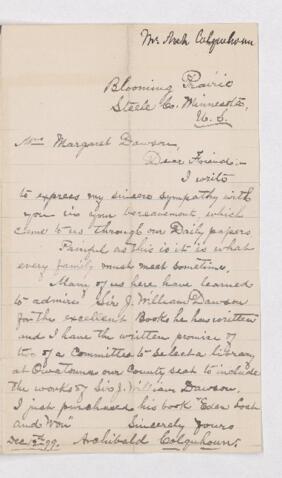 Mr Arch Colquhoun
Blooming Prairie
Steele Co. Minnesota,
U. S.
Mrs Margaret Dawson,
Dear Friend:-
I write
to express my sincere sympathy with
you in your bereavement, which
came to us through our Daily papers
Painful as this is it is what
every family must meet sometime.
Many of us here have learned
to admire Sir J. William Dawson
for the excellent Books he has written
and I have the written promise of
two of a Committee to select a library
at Owatonna our County seat to include
the works of Sir J. William Dawson.
I just purchased his book "Eden Lost
and Won"
Sincerely yours
Dec 99. Archibald Colquhoun.